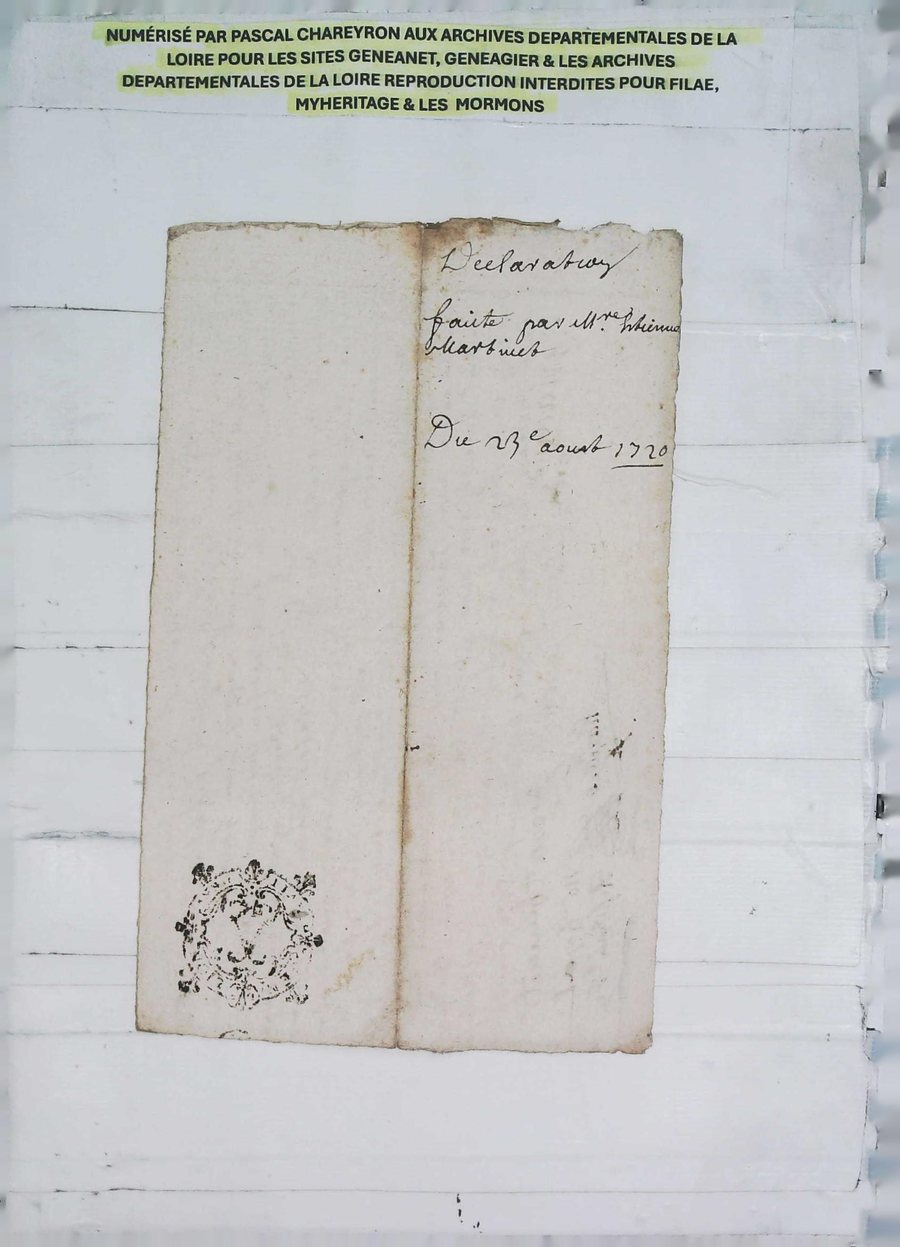 NUMÉRISÉ PAR PASCAL CHAREYRON AUX ARCHIVES DEPARTEMENTALES DE LA
LOIRE POUR LES SITES GENEANET, GENEAGIER & LES ARCHIVES
DEPARTEMENTALES DE LA LOIRE REPRODUCTION INTERDITES POUR FILAE,
MYHERITAGE & LES MORMONS
Declaration
faite par Mre Estienne
Martinet
Du 23e aoust 1720